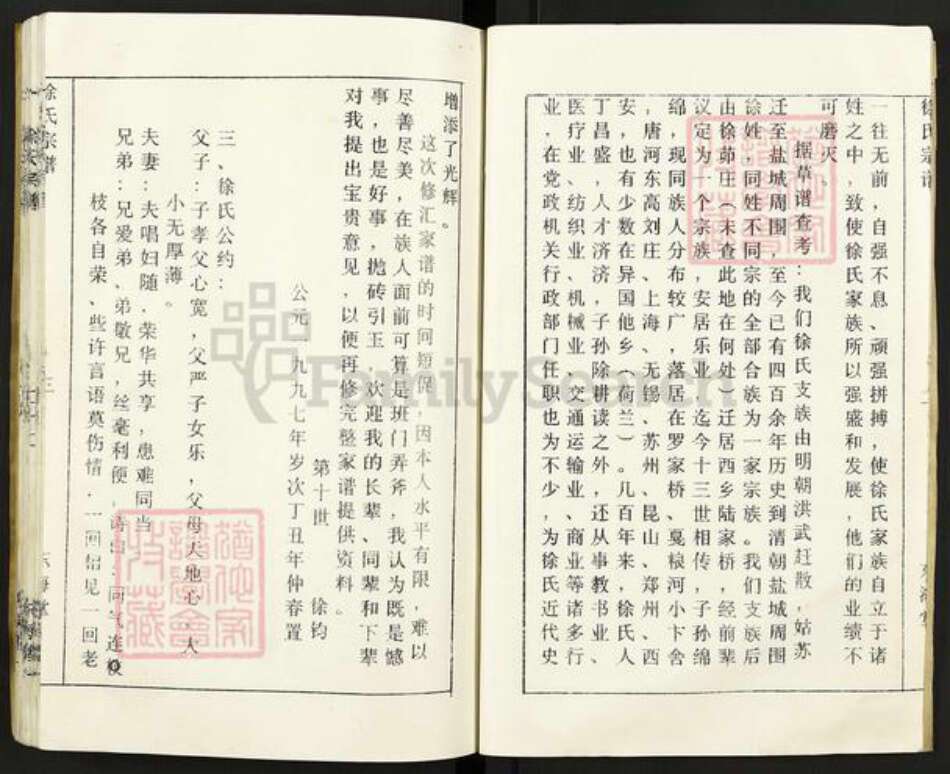 徐氏宗谱
一往无前，自强不息、顽强拼搏，使徐氏家族自立于诸
姓之中，致使徐氏家族所以强盛和发展，他们的业绩不
可磨灭、
据草谱查考：我们徐氏支族由明朝洪武赶散，姑苏
迁至盐城周围，至今已有四百余年历史到清朝盐城周围
徐姓，同姓不同宗的全部合族为一家宗族。我们支族后
由徐茆庄（未查此地在何处）迁居西乡陆家桥，经前辈
议定为一个宗族，安居乐业，迄今十三世相传，子孙绵
绵，现同族人分布较广，落居在罗家桥、戛粮河小卞舍
，唐河东高刘庄、上海、无锡、苏州、昆山、郑州、西
安，也有少数在异国他乡（荷兰）。几百年来，徐氏人
丁昌盛，人才济济，子孙除耕读之外，还从事教书业、
医疗业、纺织业、机械业、交通运输业、商业等诸多行
业，在党政机关、行政部门任职也为不少，为徐氏近代史
增添了光辉。
这次修汇家谱的时间短促，因本人水平有限，难以
尽善尽美，在族人面前可算是班门弄斧，我认为既是憾
事，也是好事，抛砖引玉，欢迎我的长辈、同辈和下辈
对我提出宝贵意见，以便再修完整家谱提供资料。
第十世　徐钧
公元一九九七年岁次丁丑年仲春置
三、徐氏公约：
父子：子孝父心宽，父严子女乐，父母天地心，大
小无厚薄。
夫妻：夫唱妇随，荣华共享，患难同当
兄弟：兄爱弟、弟敬兄，丝毫利便，同气连枝
枝各自荣、些许言语莫伤情．一回相见一回老
徐氏宗谱
FamilySearch